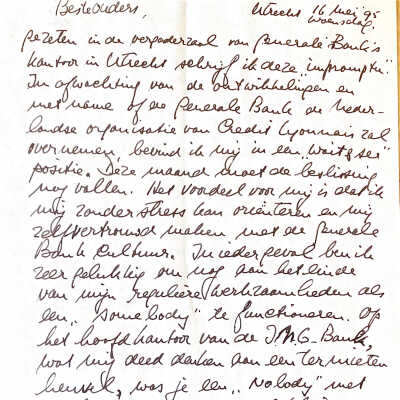 Beste Ouders,
Utrecht 16 Mei 95
Woensdag.
Gezeten in de vergaderzaal van Generale Bank's
kantoor in Utrecht schrijf ik deze "impromptu".
In afwachting van de ontwikkelingen en
met name of de Generale Bank de Neder-
landse organisatie van Credit Lyonnais zal
overnemen, bevind ik mij in een "wait & see"
positie. Deze maand moet de beslissing
nog vallen. Het voordeel voor mij is dat ik
mij zonder stress kan oriënteren en mij
zelf vertrouwd maken met de Generale
Bank Cultuur. In ieder geval ben ik
zeer gelukkig om nog aan het einde
van mijn reguliere werkzaamheden als
een "somebody" te functioneren. Op
het hoofdkantoor van de ING-Bank,
wat mij deed denken aan een termieten
heuvel, was je een "Nobody" met